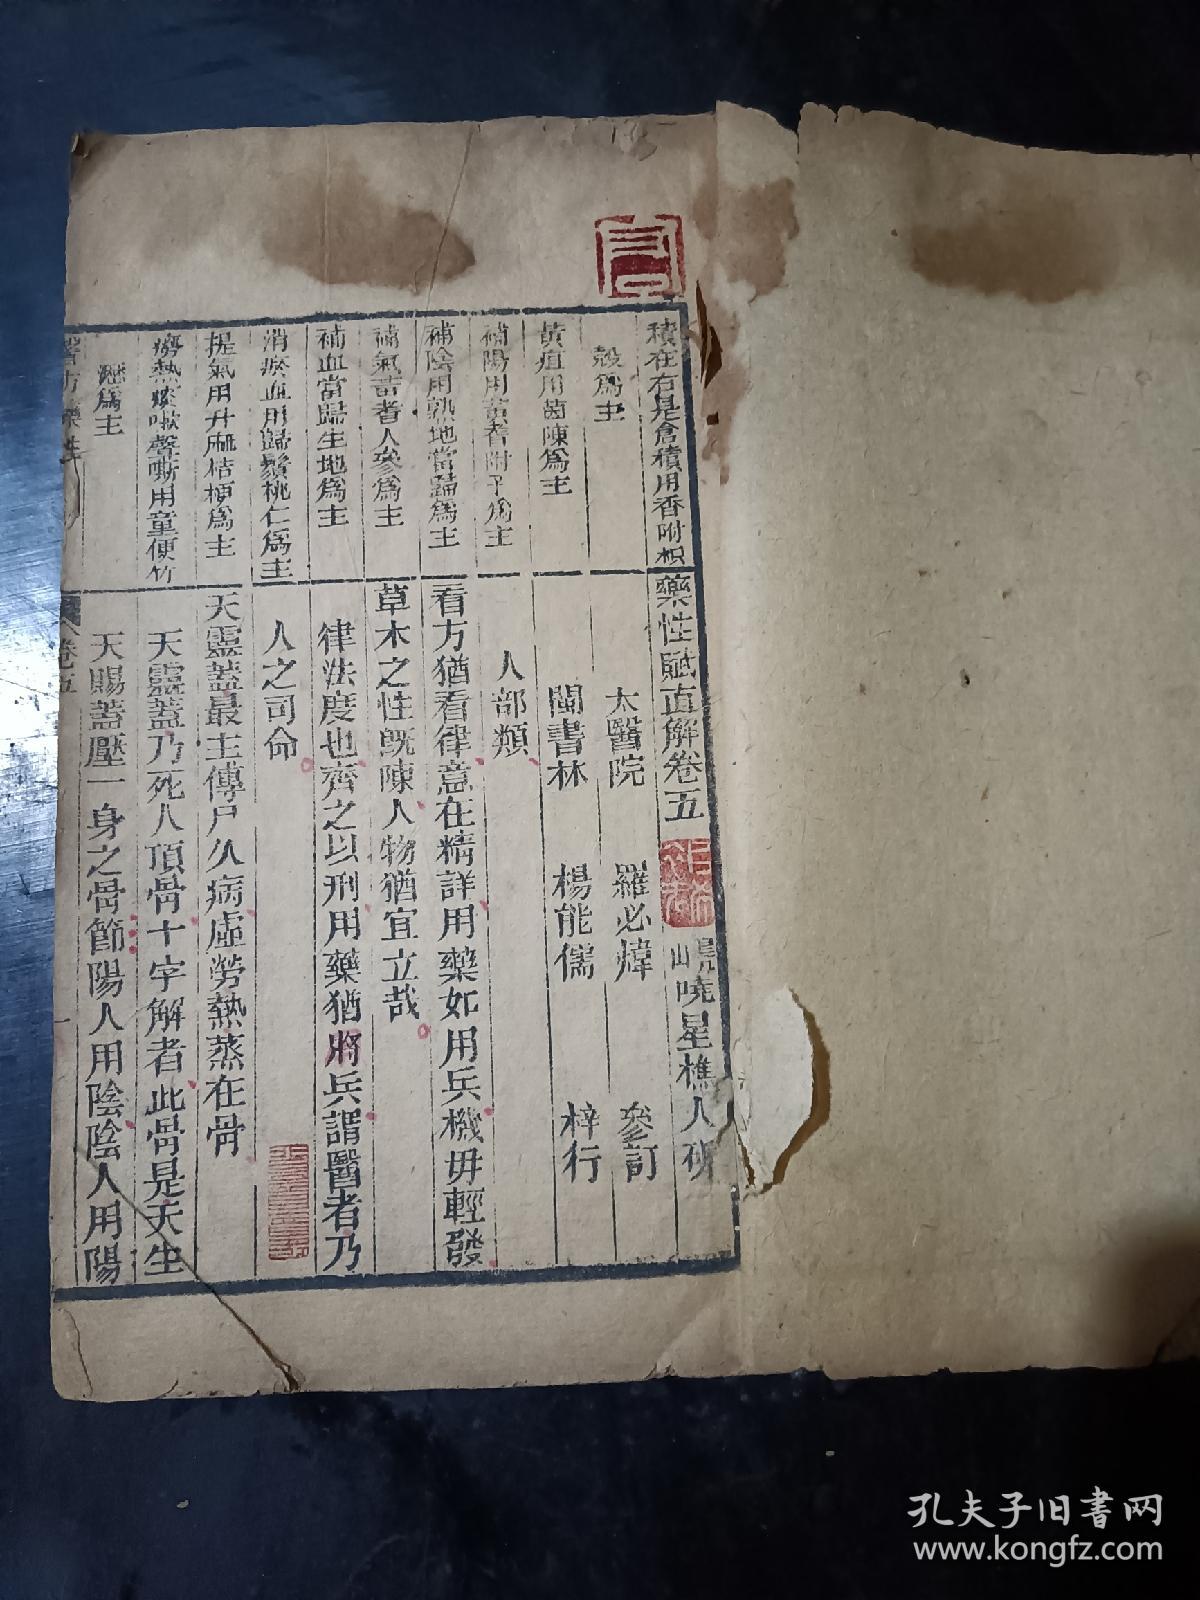 積在右是食積用香附枳
殼爲主
黃疸用茵陳爲主
補陽用黃耆附子爲主
補陰用熟地當歸爲主
補氣耆人參爲主
補血當歸生地爲主
消瘀血用歸鬚桃仁爲主
提氣用升麻桔梗爲主
癆熱痰嗽聲嘶用童便竹
瀝爲主
藥性賦直解卷五
嶢星樵人
太醫院 羅必煒 參訂
閩書林 楊能儒 梓行
人部類
看方猶看律意在精詳用藥如用兵機毋輕發
草木之性旣陳人物猶宜立哉
律法度也齊之以刑用藥猶將兵謂醫者乃
人之司命
天靈蓋最主傳尸久病虛勞熱蒸在骨
天靈蓋乃死人頂骨十字解者此骨是天生
天賜蓋壓一身之骨節陽人用陰陰人用陽
卷五
孔夫子旧书网
www.kongfz.com